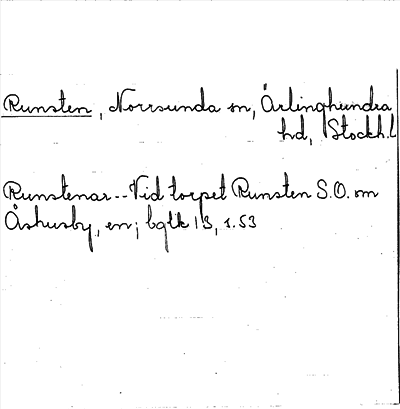 Runsten, Norrsunda sn, Ärlinghundra
hd, Stockh.l
Runstenar--Vid torpet Runsten S.O. om
Åshusby, en; bglk 13, s.53